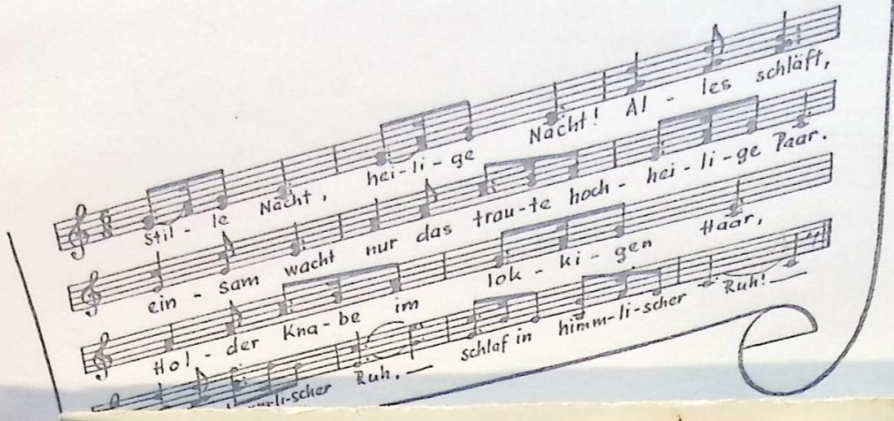 Stil - le Nacht, hei - li - ge Nacht! Al - les schläft,
ein - sam wacht nur das trau - te hoch - hei - li - ge Paar.
Hol - der Kna - be im lok - ki - gen Haar,
li-scher Ruh. — schlaf in himm-li-scher Ruh! —